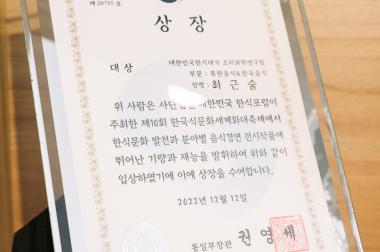 제 20795 호
상 장
대 상
대한민국한식대가 조리과학연구원
부문 : 북한음식&한국음식
성명 : 최 근 술
위 사람은 사단법인 대한민국 한식포럼이
주최한 제10회 한국음식문화세계화대축제에서
한식문화 발전과 분야별 음식경연 전시작품에
뛰어난 기량과 재능을 발휘하여 위와 같이
입상하였기에 이에 상장을 수여합니다.
2022년 12월 12일
통일부장관 권 영 세